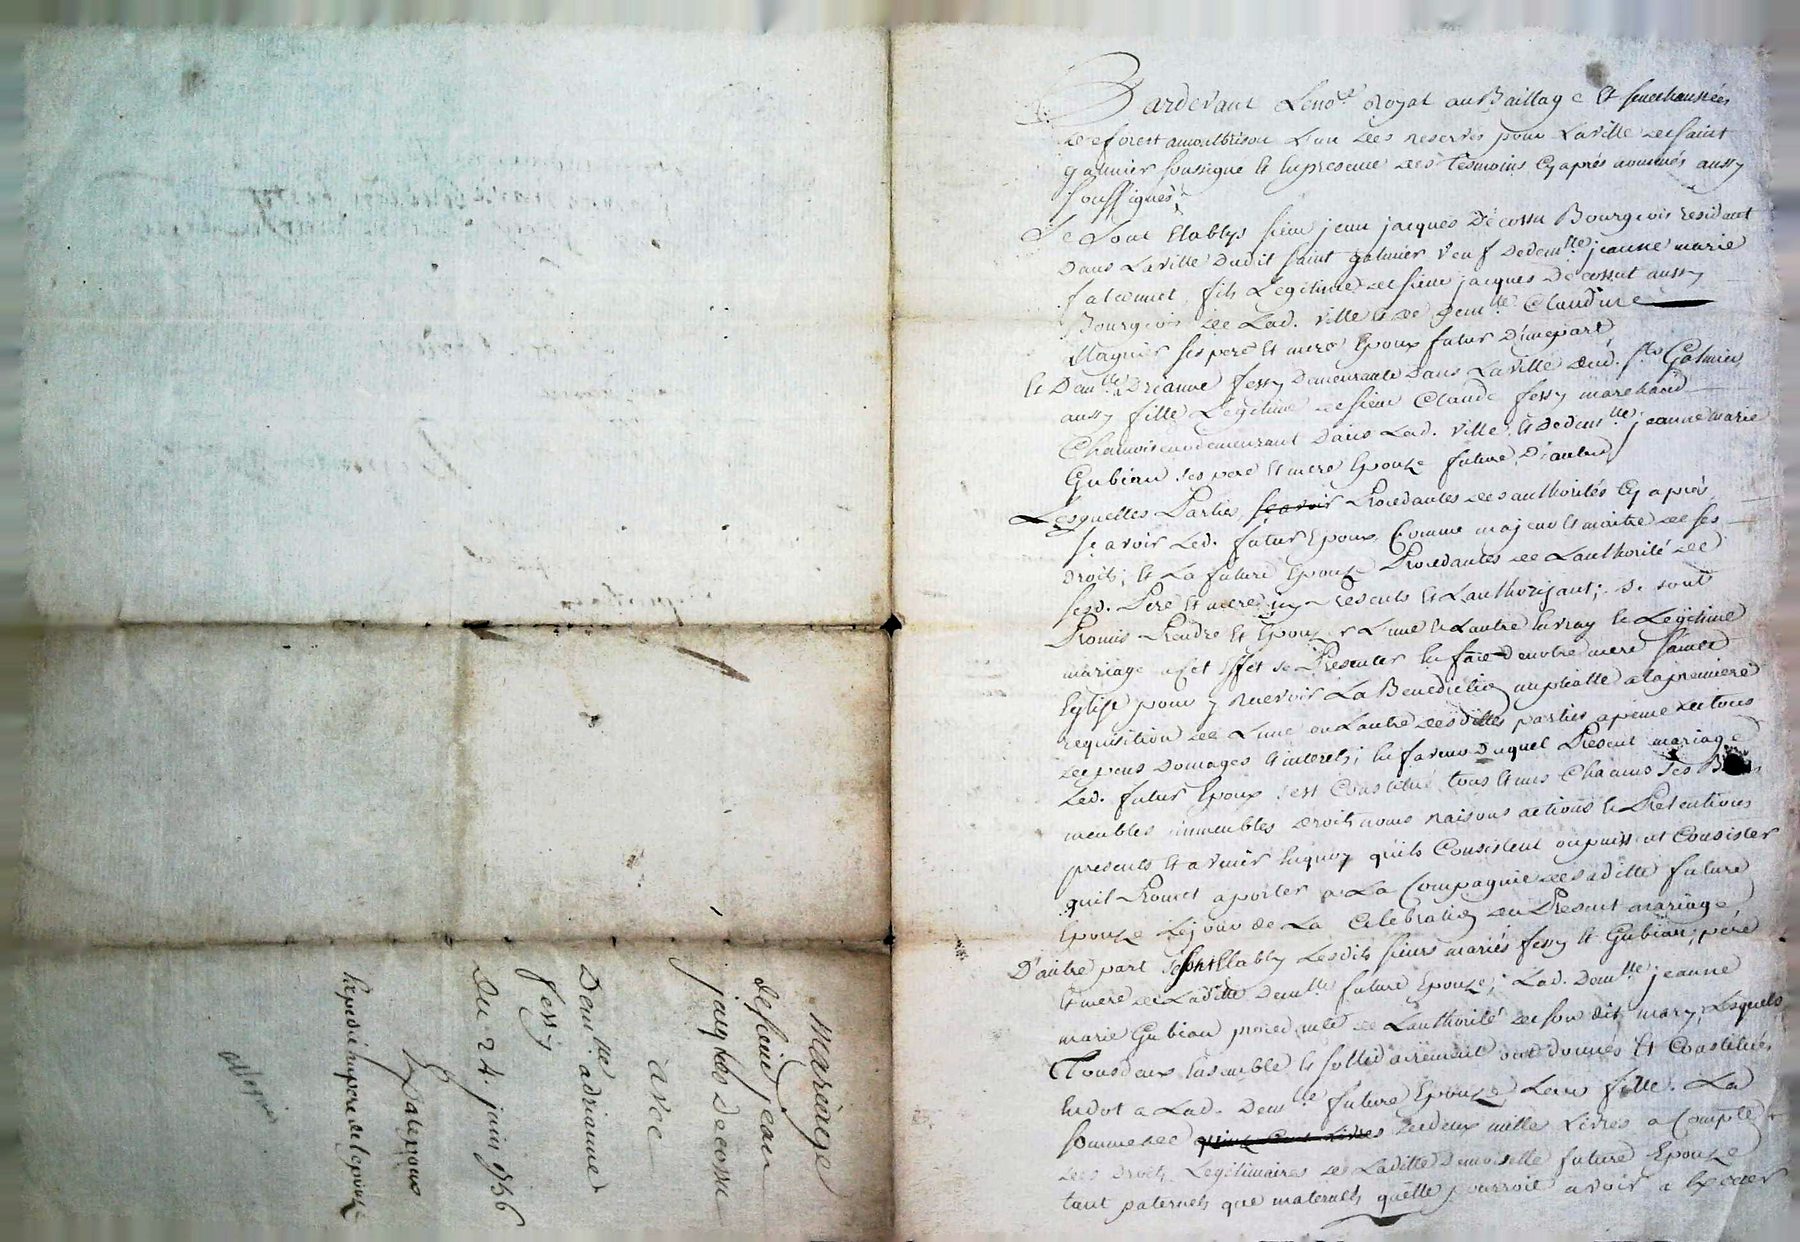 mariage
de sieur jean
jacques Decossu
avec
Dem.lle adrianne
fessy
Du 24. juin 1756
Expedié au pere de lepouze
Pardevant Le no.re Royal au Baillage Et senechaussée
de forest a montbrison L'un des reservés pour La ville de saint
galmier soussigné Et En presence des Tesmoins Cy aprés nommés aussy
soussignés;
Se sont Etablys sieur jean jacques Decossu Bourgeois residant
Dans La ville dudit saint galmier veuf de dem.lle jeanne marie
falconnet, fils Legitime de sieur jacques Decossut aussy
Bourgeois de Lad. ville Et de Dem.lle Claudine
ses pere Et mere Epoux futur D'une part,
Et Dem.lle adrianne fessy Demeurante Dans La ville dud. st. Galmier
aussy fille Legitime de sieur Claude fessy marchand
Chamoiseur demeurant Dans Lad. ville Et de dem.lle jeanne marie
Gubian ses pere Et mere Epouze future D'autre,
Lesquelles Parties scavoir Procedantes des authorités Cy aprés
scavoir Led. futur Epoux Comme majeur Et maitre de ses
Droits; Et La future Epouze Procedantes de L'authorité de
sesd. Pere Et mere icy Presents Et L'authorizant; se sont
Promis Prendre Et Epouzer L'une Et L'autre En vray Et Legitime
mariage a Cet Effet se Presenter En face de notre mere sainte
Eglise pour y Recevoir La Benediction nuptialle a la premiere
requisition de L'une ou L'autre desdittes parties a peine de tous
depens Domages Et interets; En faveur Duquel Present mariage
Led. futur Epoux s'est Constitué tous Et uns Chacuns ses Biens
meubles immeubles droits noms raisons actions Et Pretentions
presents Et a venir En quoy qu'ils Consistent ou puissent Consister
qu'il Promet aporter a La Compagnie de saditte future
Epouze Le jour de La Celebration du Present mariage,
D'autre part se sont Etably Lesdits sieurs mariés fessy Et Gubian, pere
Et mere de Laditte Dem.lle future Epouze; Lad. Dem.lle jeanne
marie Gubian procedante de L'authorité de son dit mary, Lesquels
Tous deux Ensemble Et sollidairement ont donnés Et Constitués
En dot a Lad. Dem.lle future Epouze Leur fille. La
somme de quinze Cent Livres de deux mille Livres a Compte
des Droits Legitimaires de Laditte Demoiselle future Epouze
tant paternels que maternels qu'elle pourroit avoir a Exiger